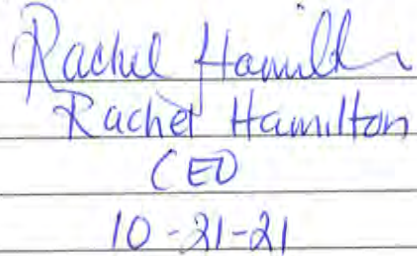 Rachel Hamilton
Rachel Hamilton
CEO
10-21-21